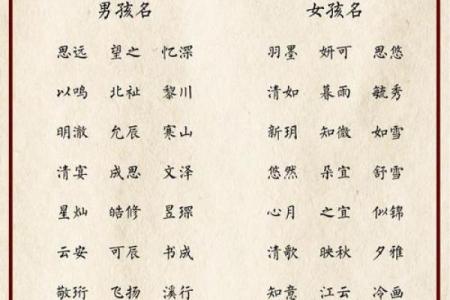 男孩名 女孩名
思远 望之 忆深 羽墨 妍可 思悠
以鸣 北祉 黎川 清如 暮雨 毓秀
明澈 允辰 寒山 新玥 知微 如雪
清宴 成思 文泽 悠然 朵宜 舒雪
星灿 皓修 昱琛 心月 之宜 似锦
云安 可辰 书成 清歌 映秋 夕雅
敬珩 飞扬 溪行 知意 江云 冷画